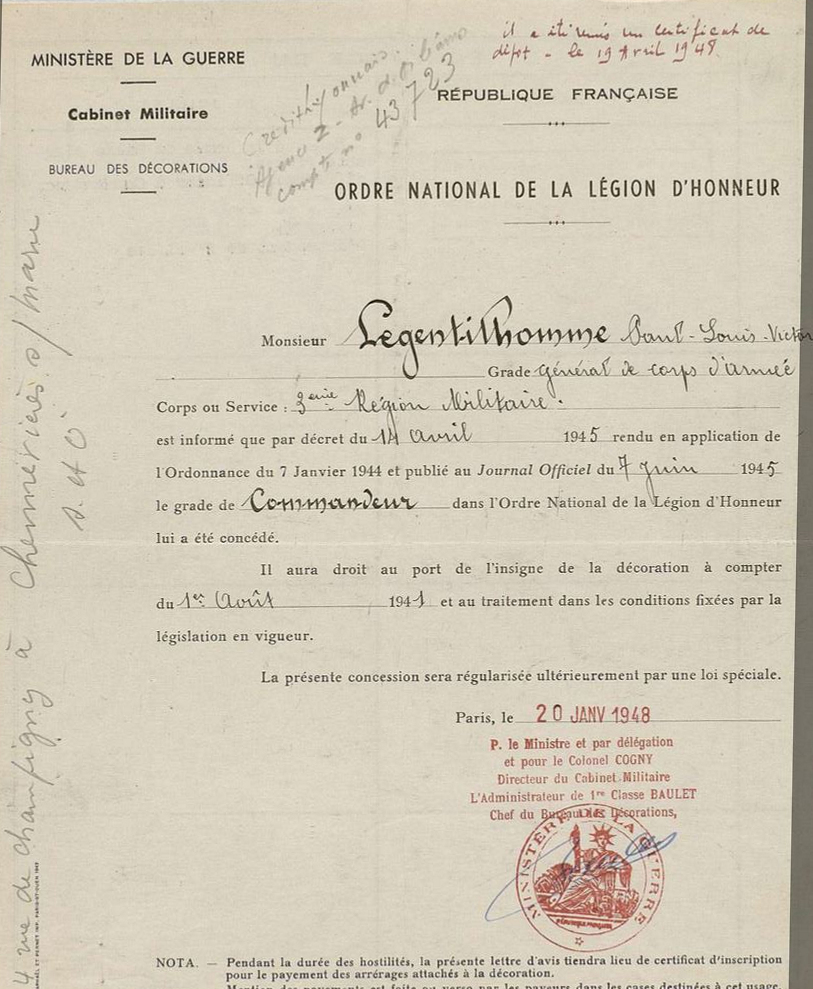 il a été remis un certificat de
dépot - le 19 Avril 1948.
MINISTÈRE DE LA GUERRE
Cabinet Militaire
BUREAU DES DÉCORATIONS
Agence Z - Av. d.
compte no 43723
RÉPUBLIQUE FRANÇAISE
ORDRE NATIONAL DE LA LÉGION D'HONNEUR
Monsieur Legentilhomme Paul-Louis-Victor
Grade Général de corps d'armée
Corps ou Service : 3eme Région Militaire.
est informé que par décret du 14 avril 1945 rendu en application de
l'Ordonnance du 7 Janvier 1944 et publié au Journal Officiel du 7 Juin 1945
le grade de Commandeur dans l'Ordre National de la Légion d'Honneur
lui a été concédé.
Il aura droit au port de l'insigne de la décoration à compter
du 1er Août 1941 et au traitement dans les conditions fixées par la
législation en vigueur.
La présente concession sera régularisée ultérieurement par une loi spéciale.
Paris, le 20 JANV 1948
P. le Ministre et par délégation
et pour le Colonel COGNY
Directeur du Cabinet Militaire
L'Administrateur de 1re Classe BAULET
Chef du Bureau des Décorations,
MINISTÈRE DE LA GUERRE
4 rue de champigny à Chennevières s/ marne
S. et O.
NOTA. — Pendant la durée des hostilités, la présente lettre d'avis tiendra lieu de certificat d'inscription
pour le payement des arrérages attachés à la décoration.
Mention des payements est faite au verso par les payeurs dans les cases destinées à cet usage.